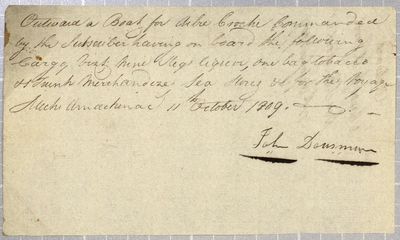 Outward a Boat for Arbre Croche Commanded
by the Subscriber having on board the following
Cargo, Viz.t, nine Kegs liquor, one bag tobacco
Trunk Merchandize Sea Stores &c for the Voyage
Michilimackinac 11th October 1809.
John Dousman